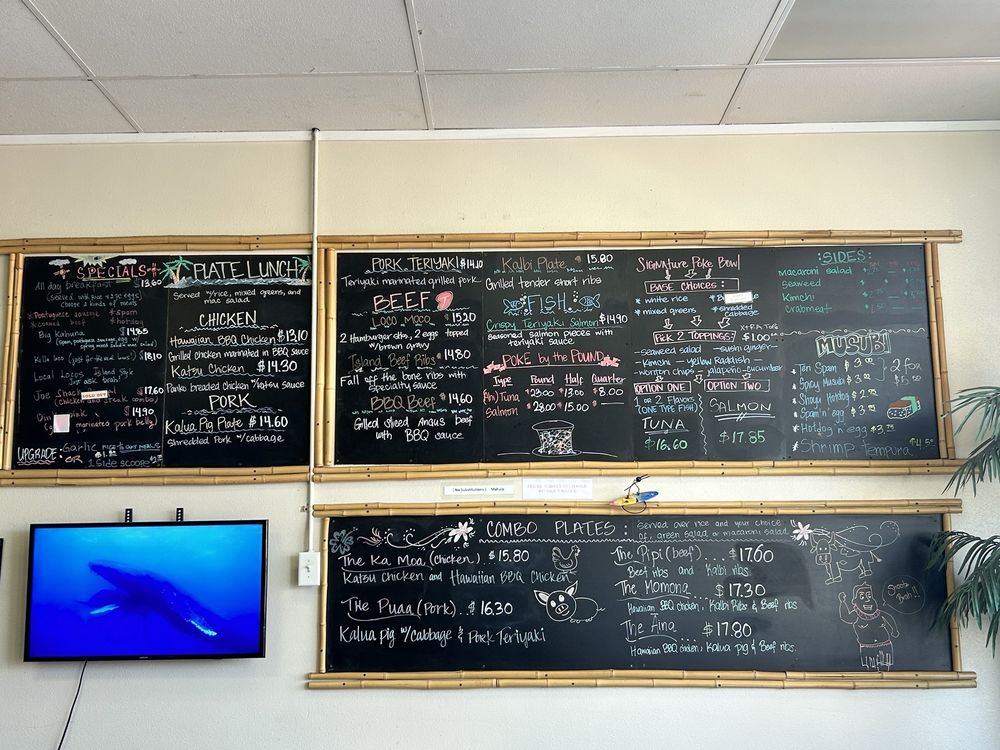 SPECIALS
All day breakfast $13.60
(served w/ rice, 2 eggs
choose 2 kinds of meats)
*Portuguese sausage *spam
*corned beef *hotdog
Big Kahuna $14.55
$18.10
Local Locos Island Style
$17.60
SOLD OUT
(chicken and steak combo)
$14.90
marinated pork belly)
UPGRADE: Garlic rice
OR 1 side scoop
PLATE LUNCH
Served w/rice, mixed greens, and
mac salad
CHICKEN
Hawaiian BBQ Chicken $13.10
Grilled chicken marinated in BBQ sauce
Katsu Chicken $14.30
Panko breaded chicken w/katsu sauce
PORK
Kalua Pig Plate $14.60
Shredded Pork w/cabbage
PORK TERIYAKI $14.10
Teriyaki marinated grilled pork
BEEF
Loco Moco $15.20
2 Hamburger patties, 2 eggs topped
w/brown gravy
Island Beef Ribs $14.80
Fall off the bone ribs with
specialty sauce
BBQ Beef $14.60
Grilled sliced Angus beef
with BBQ sauce
Kalbi Plate $15.80
Grilled tender short ribs
FISH
Crispy Teriyaki Salmon $14.90
Seasoned salmon pieces with
teriyaki sauce
POKE by the POUND
Type Pound Half Quarter
Ahi/Tuna $23.00 $13.00 $8.00
Salmon $28.00 $15.00
Signature Poke Bowl
BASE CHOICES:
*white rice
*mixed greens *shredded cabbage
PICK 2 TOPPINGS: XTRA Toppings $1.00
-Seaweed salad -sushi ginger
-Kimchi -Yellow Raddish
-wonton chips -jalapeño -cucumber
OPTION ONE
1 or 2 Flavors
(ONE TYPE FISH)
TUNA
$16.60
OPTION TWO
SALMON
$17.85
:SIDES:
Macaroni salad
Seaweed
Kimchi
Crabmeat
MUSUBI
*Teri Spam
*Spicy Musubi
*Shoyu Hotdog
*Spam n' egg
*Hotdog n egg
*Shrimp Tempura
2 for
(No Substitutions) Mahalo
COMBO PLATES: Served over rice and your choice
of, green salad or macaroni salad.
The Ka Moa (chicken). $15.80
Katsu chicken and Hawaiian BBQ Chicken
The Puaa (Pork) .. $16.30
Kalua pig w/cabbage & Pork Teriyaki
The Pipi (beef) .. $17.60
Beef ribs and Kalbi ribs
The Momona .. $17.30
Hawaiian BBQ chicken, Kalbi Ribs & Beef ribs
The Aina $17.80
Hawaiian BBQ chicken, Kalua pig & Beef ribs.